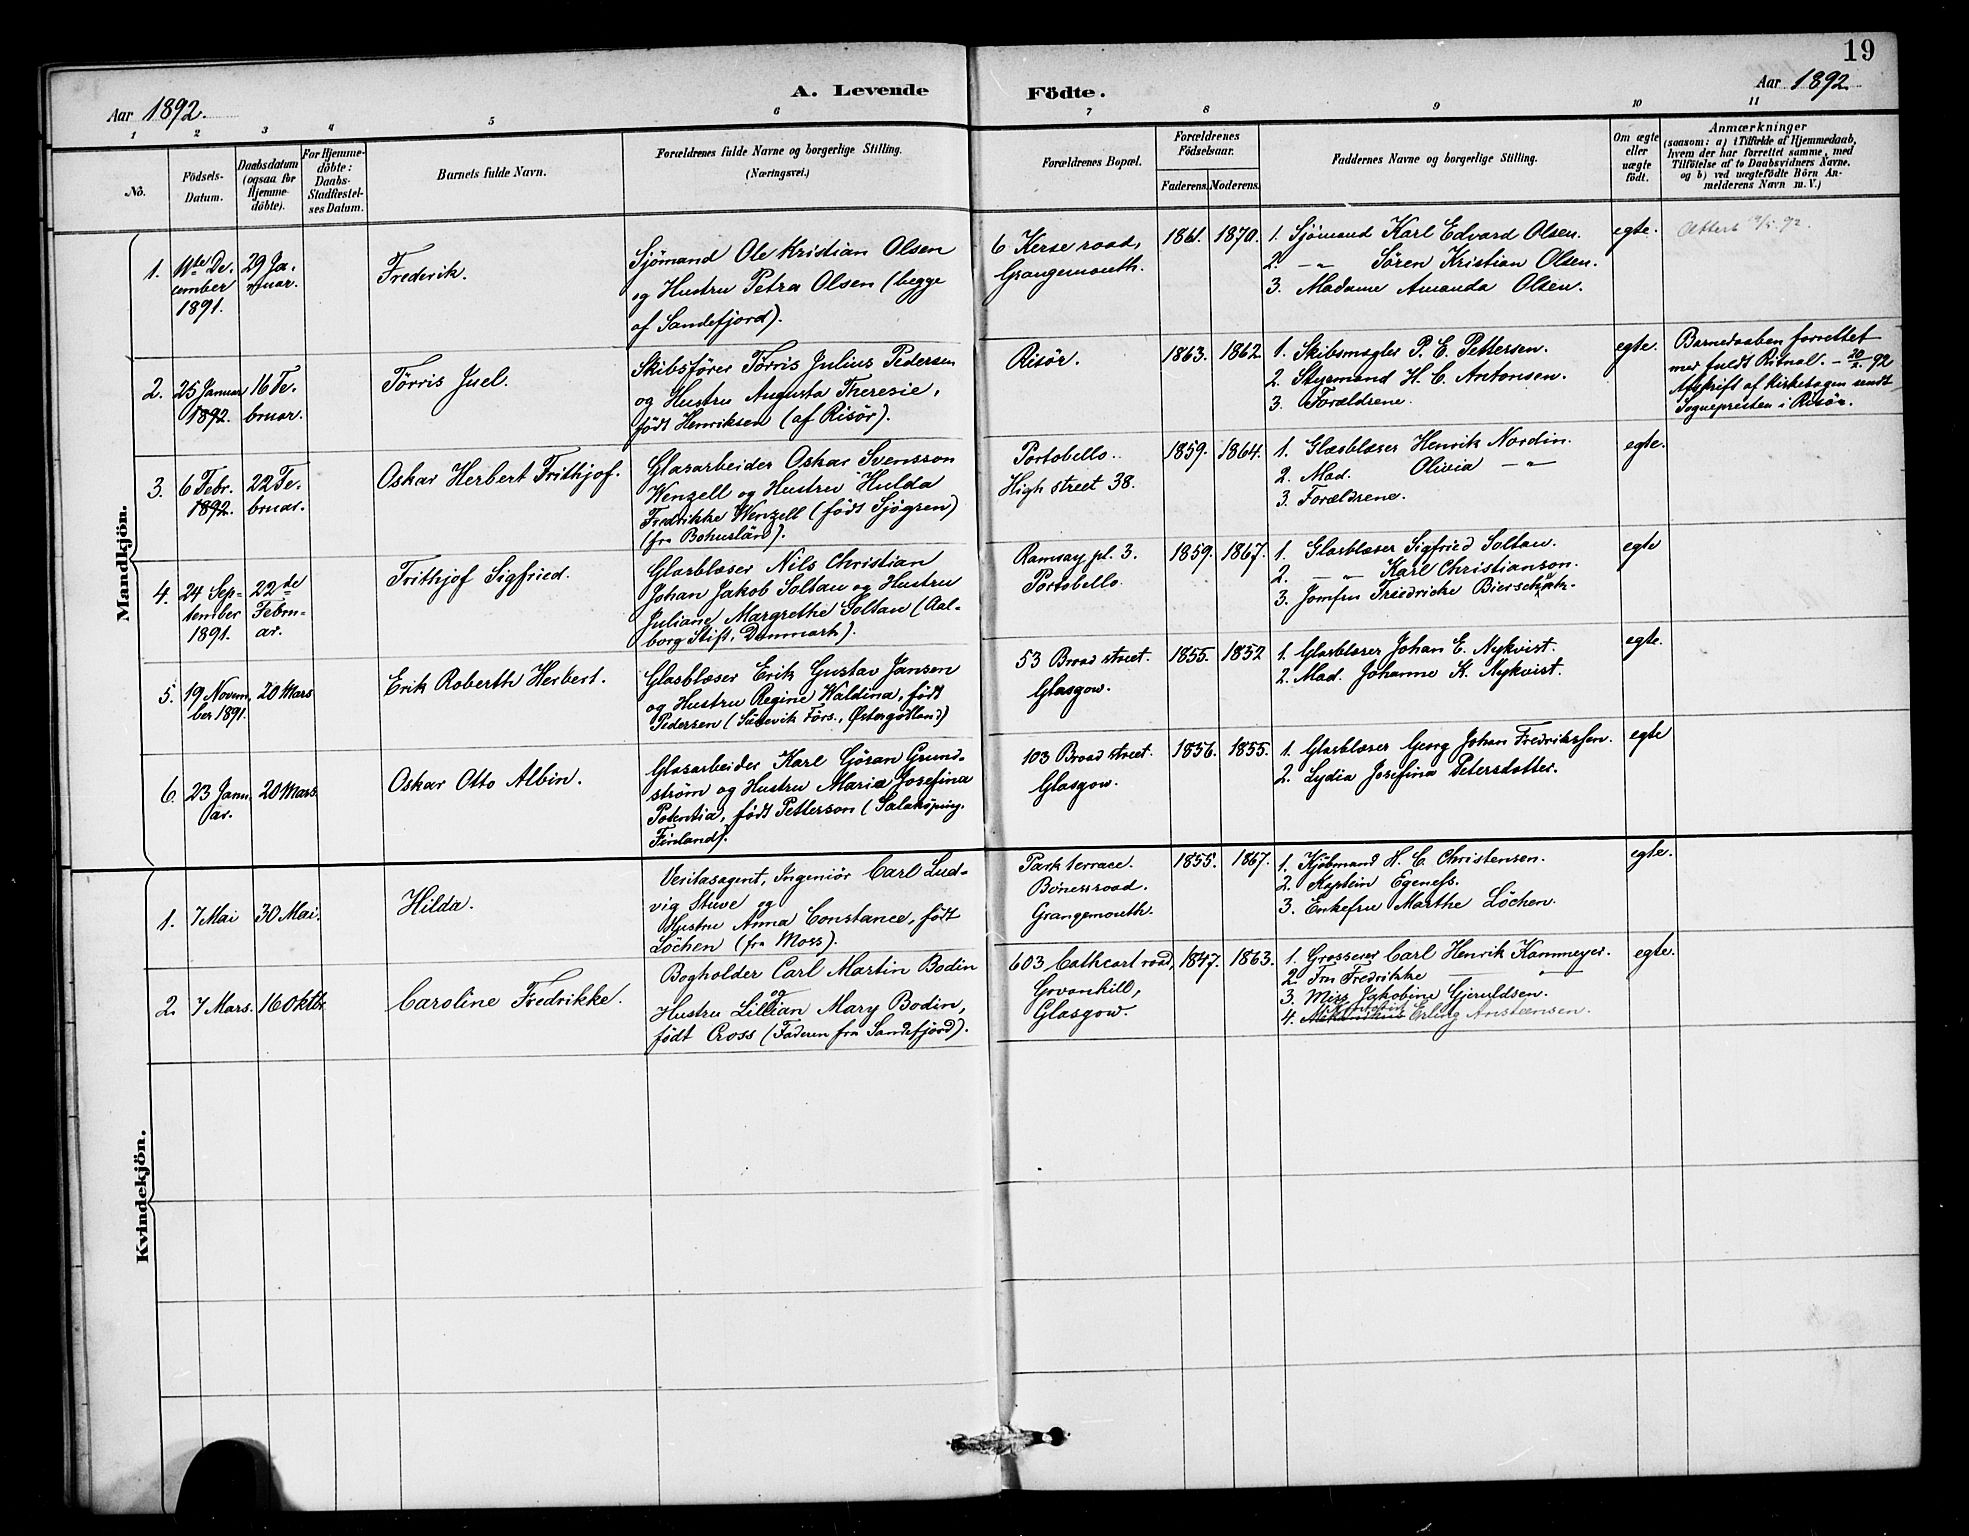 19
Aar 1892.
A. Levende
Födte.
Aar 1892.
1
2
3
4
5
6
7
8
9
10
11
Nö.
Födsels-
Datum.
Daabsdatum
(ogsaa for
Hjemme-
döbte).
For Hjemme-
döbte:
Daabs-
Stadfæstel-
ses Datum.
Barnets fulde Navn.
Forældrenes fulde Navne og borgerlige Stilling.
(Næringsvei.)
Forældrenes Bopæl.
Forældrenes
Födselsaar.
Faderens.
Moderens.
Faddernes Navne og borgerlige Stilling.
Om ægte
eller
uægte
födt.
Anmærkninger
(saasom: a) i Tilfælde af Hjemmedaab,
hvem der har forrettet samme, med
Tilföielse af to Daabsvidners Navne,
og b) ved uægtefödte Börn An-
melderens Navn m. V.)
Mandkjön.
1.
11te De-
cember
1891.
29 Ja-
nuar.
Frederik.
Sjömand Ole Kristian Olsen
og Hustru Petra Olsen (begge
af Sandefjord).
6 Kerse road,
Grangemouth.
1861.
1870.
1. Sjömand Karl Edvard Olsen.
2. — " Sören Kristian Olsen.
3. Madame Amanda Olsen.
egte.
Attest
2.
25 Januar
1892.
16 Fe-
bruar.
Törris Juel.
Skibsförer Törris Julius Pedersen
og Hustru Augusta Theresie,
födt Henriksen (af Risör).
Risör.
1863.
1862.
1. Skibsmægler P. E. Pettersen.
2. Styrmand H. C. Antonsen.
3. Forældrene.
egte.
Barnedaaben forrettet
med fuldt Ritual. – 20/2 92
Afskrift af Kirkebogen sendt
Sognepresten i Risör.
3.
6 Febr.
1892.
22 Fe-
bruar.
Oskar Herbert Frithjof.
Glasarbeider Oskar Svensson
Wenzell og Hustru Hulda
Fredrikke Wenzell (födt Sjögren)
(fra Bohuslän).
Portobello.
High street 38.
1859.
1864.
1. Glasblæser Henrik Nordin.
2. Mad. Olivia — "
3. Forældrene.
egte.
4.
24 Sep-
tember
1891.
22de
Febru-
ar.
Frithjof Sigfried.
Glasblæser Nils Christian
Johan Jakob Soltau og Hustru
Juliane Margrethe Soltau (Aal-
borg Stift, Danmark).
Ramsay pl. 3.
Portobello.
1859.
1867.
1. Glasblæser Sigfried Soltau.
2. — " Karl Christianson.
3. Jomfru Friedricke Bierschück.
egte
5.
19 Novem-
ber 1891.
20 Mars
Erik Roberth Herbert.
Glasblæser Erik Gustav Jansen
og Hustru Regine Waldina, födt
Pedersen ( Förs., Østergötland)
53 Broad street.
Glasgow.
1855.
1852
1. Glasblæser Johan E. Nykvist.
2. Mad. Johanne K. Nykvist.
egte.
6.
23 Janu-
ar.
20 Mars.
Oskar Otto Albin.
Glasarbeider Karl Göran Grund-
ström og Hustru Maria Josefina
Potentia, födt Petterson (Salaköping.
Finland).
103 Broad street.
Glasgow.
1856.
1855.
1. Glasblæser Georg Johan Fredrikssen.
2. Lydia Josefina Petersdotter.
egte
Kvindekjön.
1.
7 Mai
30 Mai.
Hilda.
Veritasagent, Ingeniör Carl Lud-
vig Stuve og
Hustru Anna Constance, födt
Löchen (fra Moss).
Park terrace.
Bonessroad.
Grangemouth.
1855.
1867.
1. Kjöbmand H. C. Christensen.
2. Kaptein Egeness.
3. Enkefru Marthe Löchen.
egte.
2.
7 Mars.
16 Oktbr
Caroline Fredrikke.
Bogholder Carl Martin Bodin
og
Hustru Lillian Mary Bodin,
födt Cross (Faderen fra Sandefjord).
603 Cathcart road,
Govanhill,
Glasgow.
1847.
1863.
1. Grosserer Carl Henrik Kammeyer.
2. Fru Fredrikke — "
3. Miss Jakobine Gjeruldsen.
4. Erling Anstensen.
egte.